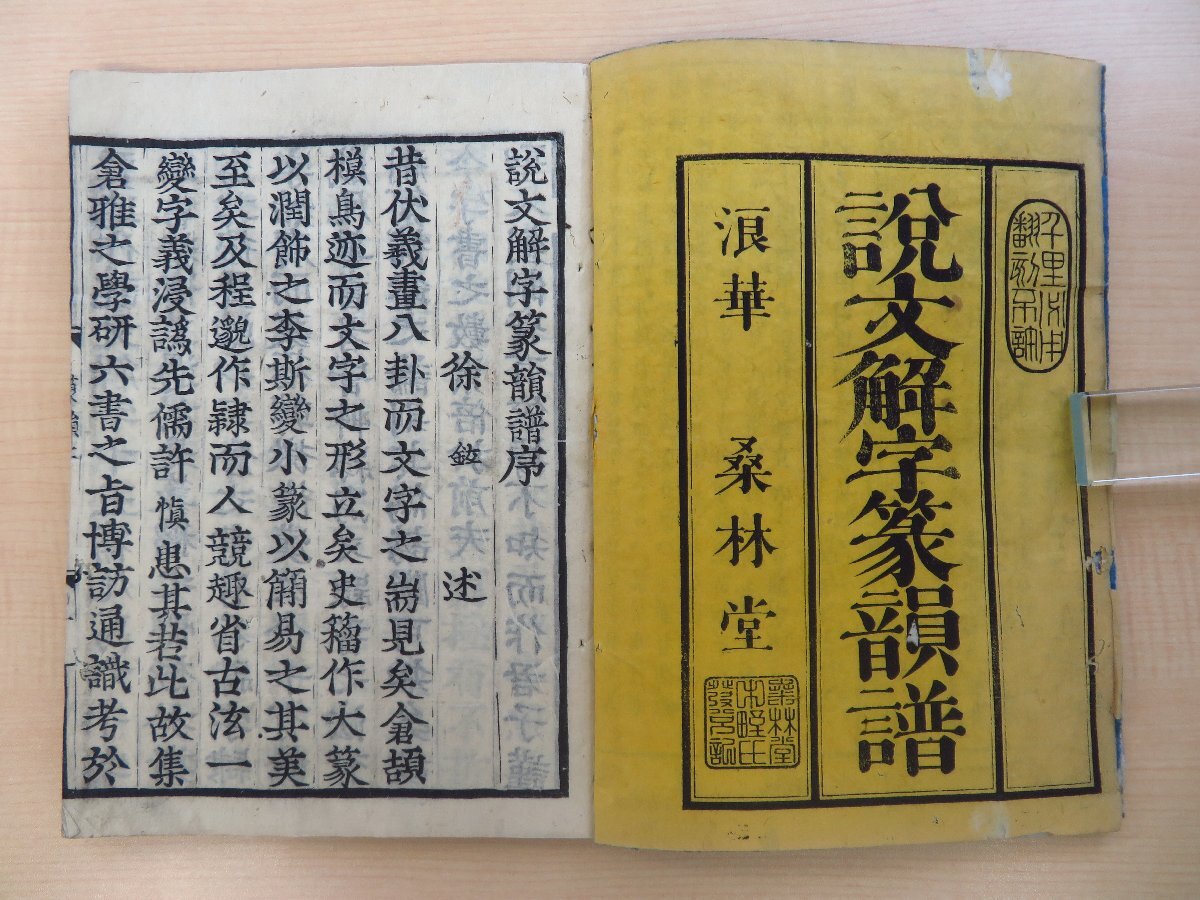 千里必究
翻刻不許
說文解字篆韻譜
浪華 桑林堂
桑林堂
發兌記
說文解字篆韻譜序
徐鉉述
昔伏羲畫八卦而文字之耑見矣倉頡
模鳥迹而文字之形立矣史籀作大篆
以潤飾之李斯變小篆以簡易之其美
至矣及程邈作隷而人競趣省古法一
變字義浸譌先儒許慎患其若此故集
倉雅之學研六書之旨博訪通識考於